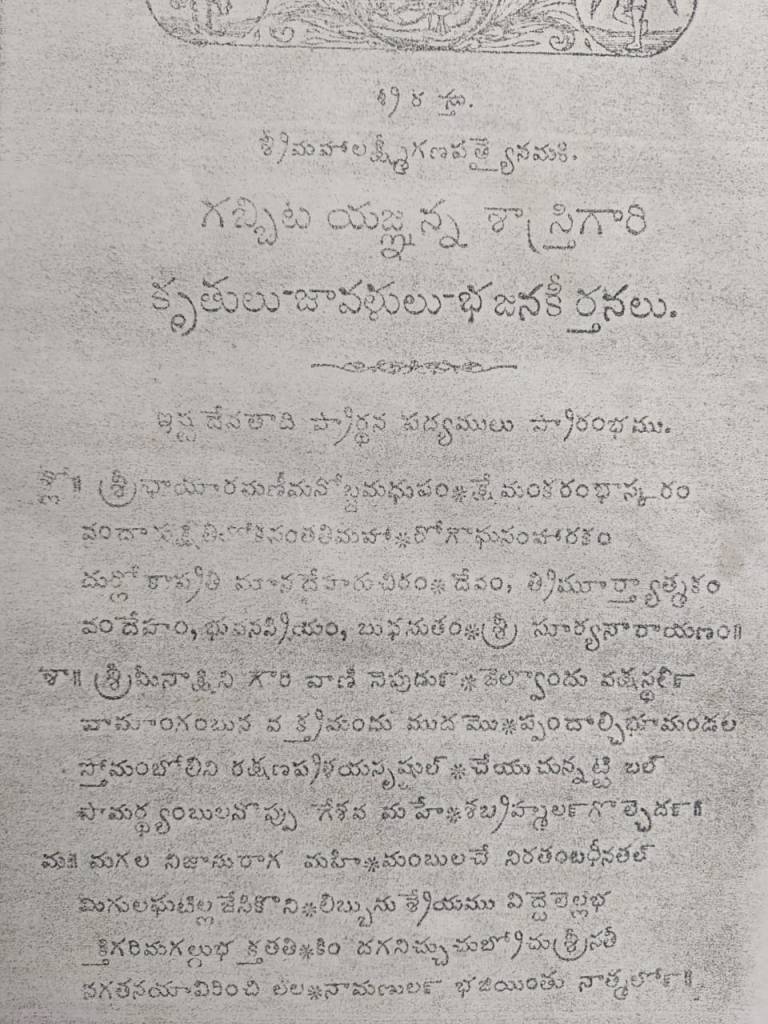 శ్రీ ర స్తు.
శ్రీమహాలక్ష్మీగణపత్యైనమః.
గబ్బిట యజ్ఞన్న శాస్త్రిగారి
కృతులు-జావళులు-భజనకీర్తనలు.
ఇష్ట దేవతాది ప్రార్థన పద్యములు ప్రారంభము.
శ్లో॥ శ్రీఛాయారమణీమనోబ్జమధుపం*క్షేమంకరంభాస్కరం
మహా*రోగౌఘసంహారకం
దేహరుచిరం*దేవం, త్రిమూర్త్యాత్మకం
వందేహం, భువనప్రియం, బుధనుతం*శ్రీ సూర్యనారాయణం॥
శా॥ శ్రీమీనాక్షిని గారి వాణి నెపుడున్*జెల్వొందు వక్షస్థలిన్
వామాంగంబున వక్త్రమందు ముద మొ*ప్పందాల్చిభూమండల
స్తోమంబోలిని రక్షణప్రళయసృష్టుల్*చేయుచున్నట్టి బల్
సామర్థ్యంబులనొప్పు కేశవ మహే*శబ్రహ్మలన్‌గొల్చెదన్॥
మ॥ మగల నిజానురాగ మహి*మంబులచే నిరతంబధీనతల్
మిగులఘటిల్ల జేసికొని*లిబ్బును శ్రేయము విద్దెలెల్లభ
క్తిగరిమగల్గుభక్తతతి*కిం దగనిచ్చుచుబ్రోచుశ్రీసతీ
నగతనయావిరించి లల*నామణులన్ భజియింతు నాత్మలోన్॥